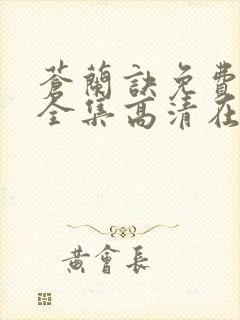 蒼蘭訣免費
全集高清在
黃會長